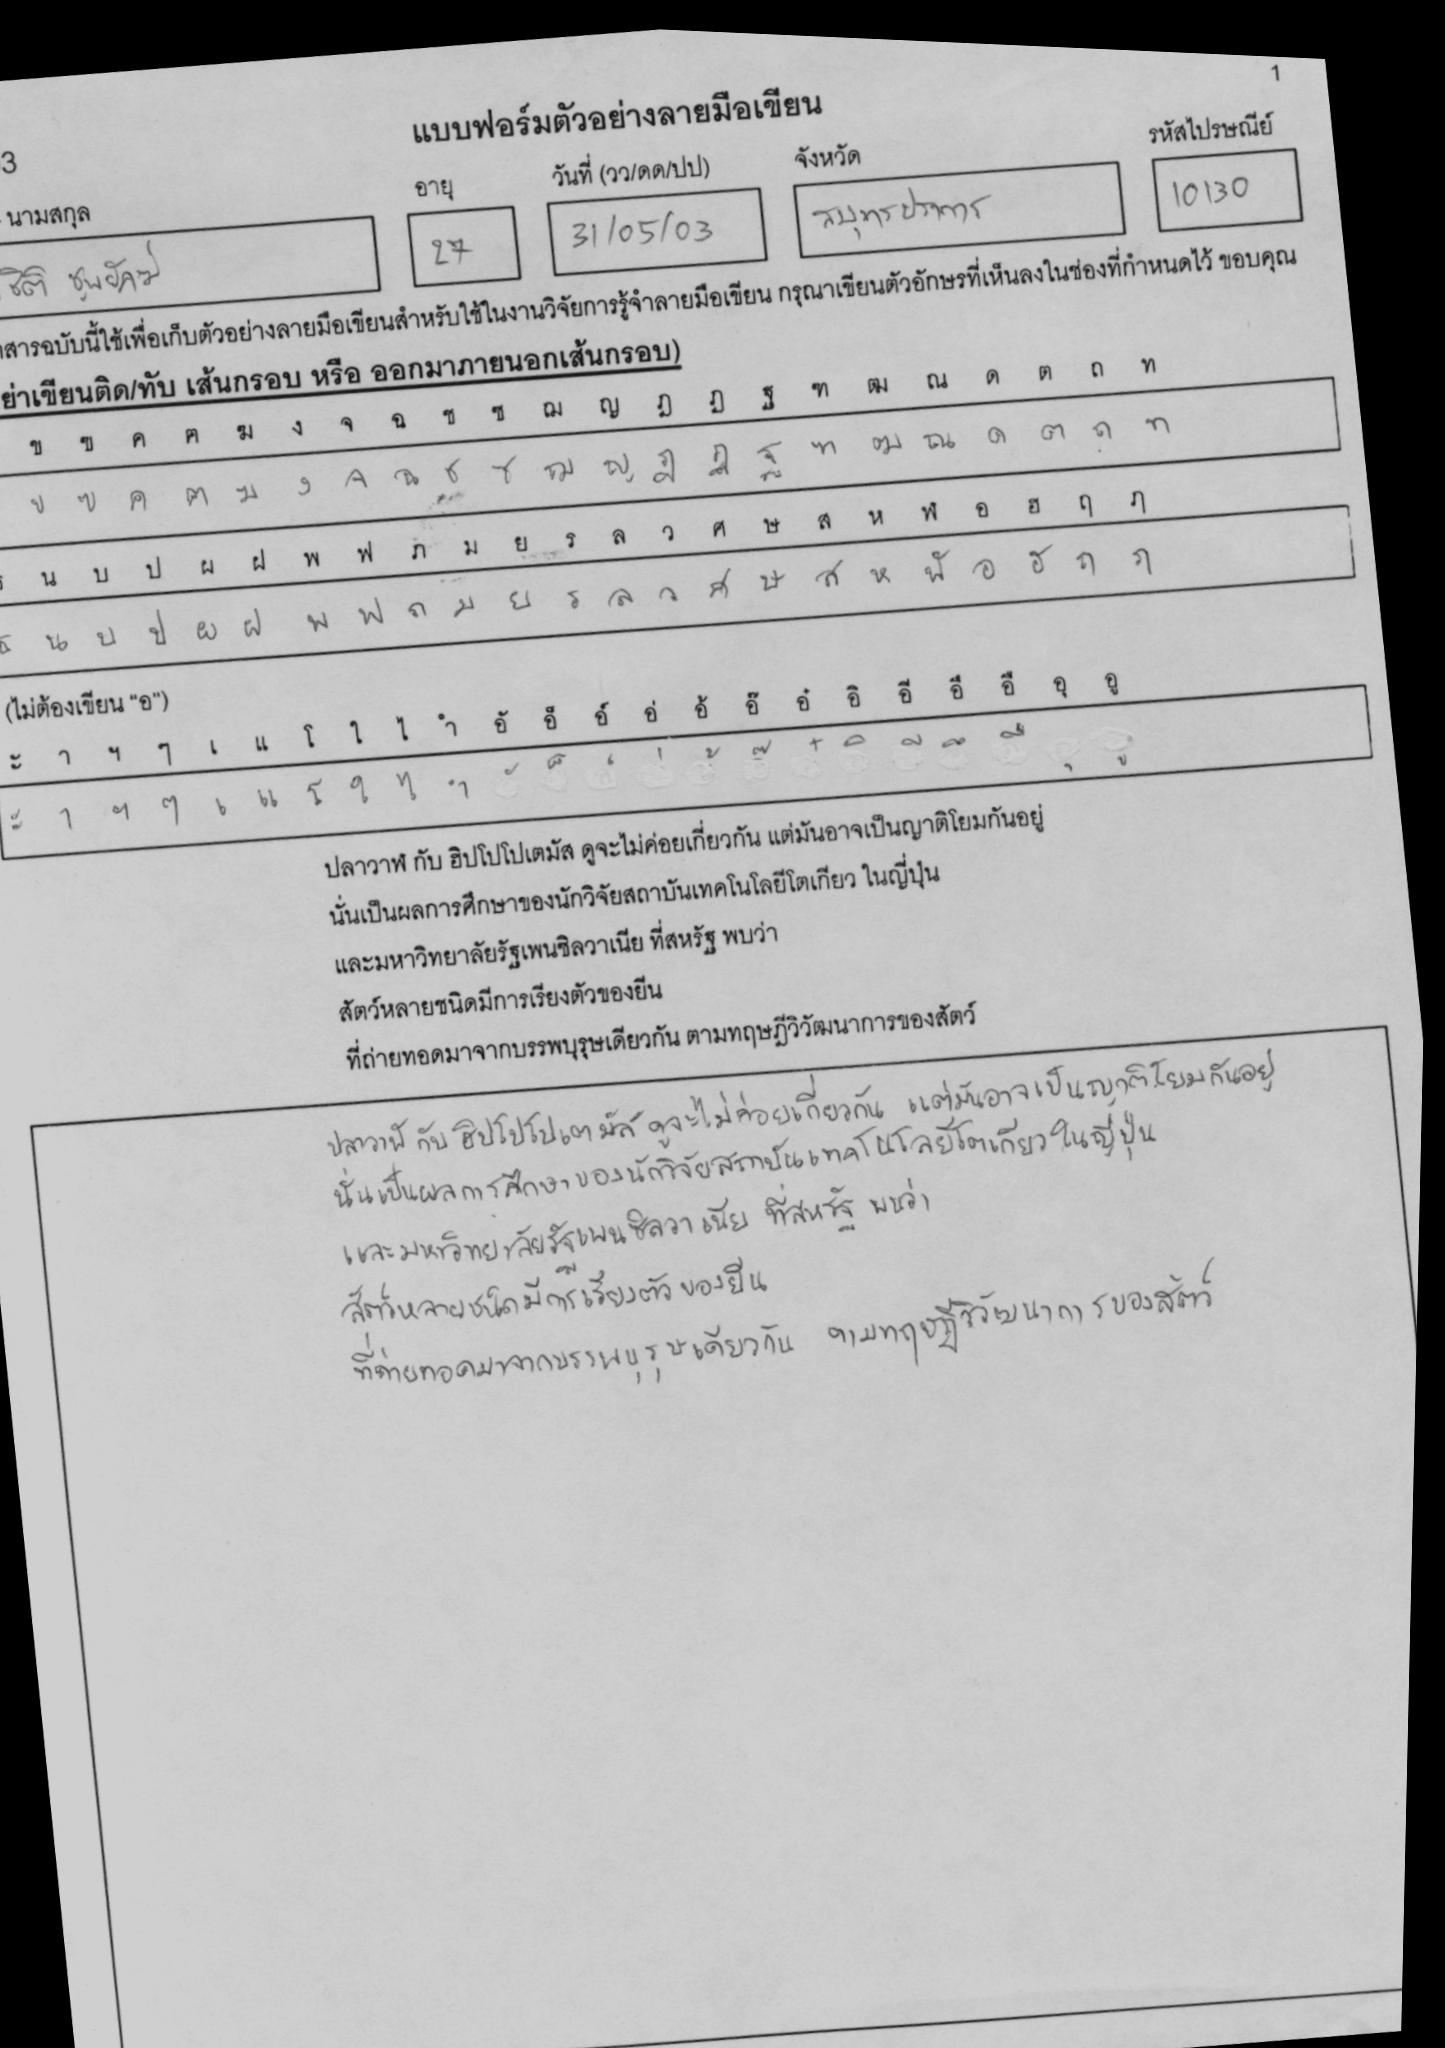 1
แบบฟอร์มตัวอย่างลายมือเขียน
3
นามสกุล อายุ วันที่ (วว/ดด/ปป) จังหวัด รหัสไปรษณีย์
27 31/05/03 สมุทรปราการ 10130
สารฉบับนี้ใช้เพื่อเก็บตัวอย่างลายมือเขียนสำหรับใช้ในงานวิจัยการรู้จำลายมือเขียน กรุณาเขียนตัวอักษรที่เห็นลงในช่องที่กำหนดไว้ ขอบคุณ
ย่าเขียนติด/ทับ เส้นกรอบ หรือ ออกมาภายนอกเส้นกรอบ)
ข ฃ ค ฅ ฆ ง จ ฉ ช ซ ฌ ญ ฎ ฏ ฐ ฑ ฒ ณ ด ต ถ ท
ข ฃ ค ฅ ฆ ง จ ฉ ช ซ ฌ ญ ฎ ฏ ฐ ฑ ฒ ณ ด ต ถ ท
ธ น บ ป ผ ฝ พ ฟ ภ ม ย ร ล ว ศ ษ ส ห ฬ อ ฮ ฤ ฦ
ธ น บ ป ผ ฝ พ ฟ ภ ม ย ร ล ว ศ ษ ส ห ฬ อ ฮ ฤ ฦ
(ไม่ต้องเขียน "อ")
ะ า ฯ ๆ เ แ โ ใ ไ ำ อั อ็ อ์ อ่ อ้ อ๊ อ๋ อิ อี อึ อื อุ อู
ะ า ฯ ๆ เ แ โ ใ ไ ำ ั ็ ์ ่ ้ ๊ ๋ ิ ี ึ ื ุ ู
ปลาวาฬ กับ ฮิปโปโปเตมัส ดูจะไม่ค่อยเกี่ยวกัน แต่มันอาจเป็นญาติโยมกันอยู่
นั่นเป็นผลการศึกษาของนักวิจัยสถาบันเทคโนโลยีโตเกียว ในญี่ปุ่น
และมหาวิทยาลัยรัฐเพนซิลวาเนีย ที่สหรัฐ พบว่า
สัตว์หลายชนิดมีการเรียงตัวของยีน
ที่ถ่ายทอดมาจากบรรพบุรุษเดียวกัน ตามทฤษฎีวิวัฒนาการของสัตว์
ปลาวาฬ กับ ฮิปโปโปเตมัส ดูจะไม่ค่อยเกี่ยวกัน แต่มันอาจเป็นญาติโยมกันอยู่
นั่นเป็นผลการศึกษาของนักวิจัยสถาบันเทคโนโลยีโตเกียว ในญี่ปุ่น
และมหาวิทยาลัยรัฐเพนซิลวาเนีย ที่สหรัฐ พบว่า
สัตว์หลายชนิดมีการเรียงตัวของยีน
ที่ถ่ายทอดมาจากบรรพบุรุษเดียวกัน ตามทฤษฎีวิวัฒนาการของสัตว์